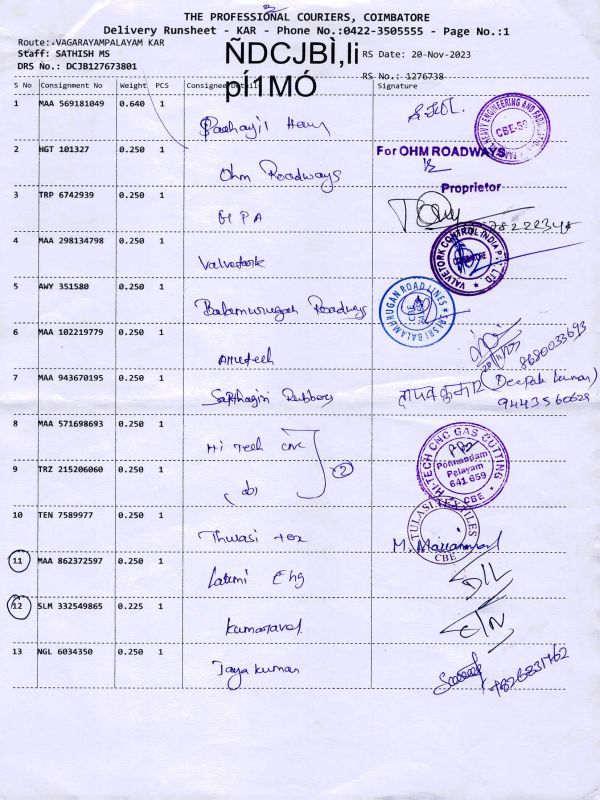 THE PROFESSIONAL COURIERS, COIMBATORE
Delivery Runsheet - KAR - Phone No.:0422-3505555 - Page No.:1
Route:.VAGARAYAMPALAYAM KAR
Staff: SATHISH MS
ÑDCJBÌ,li
RS Date: 20-Nov-2023
DRS No.: DCJB127673801
pí1MÓ
RS No.: 1276738
S No Consignment No Weight PCS Consignee Details Signature
1 MAA 569181049 0.640 1
HEAVY ENGINEERING AND CBE-59
2 HGT 101327 0.250 1 Ohm Roadways For OHM ROADWAYS
Proprietor
3 TRP 6742939 0.250 1 G P A
4 MAA 298134798 0.250 1 Valvetork VALVETORK CONTROL INDIA P LTD COIMBATORE
5 AWY 351580 0.250 1 Balamurugan Roadways SRI BALAMURUGAN ROAD LINES CBE
6 MAA 102219779 0.250 1 20/11/23 8680033693
7 MAA 943670195 0.250 1 Sapthagiri Rubbers (Deepak kumar)
9443560628
8 MAA 571698693 0.250 1 Hi Tech CNC HI-TECH CNC GAS CUTTING Ponnandam Pelayam 641 659 CBE
9 TRZ 215206060 0.250 1 (do) 2
10 TEN 7589977 0.250 1 Thulasi tex TULASI TEXTILES CBE
11 MAA 862372597 0.250 1 Laxmi Eng D/L
12 SLM 332549865 0.225 1 Kumaravel C/N
13 NGL 6034350 0.250 1 Jaya kumar